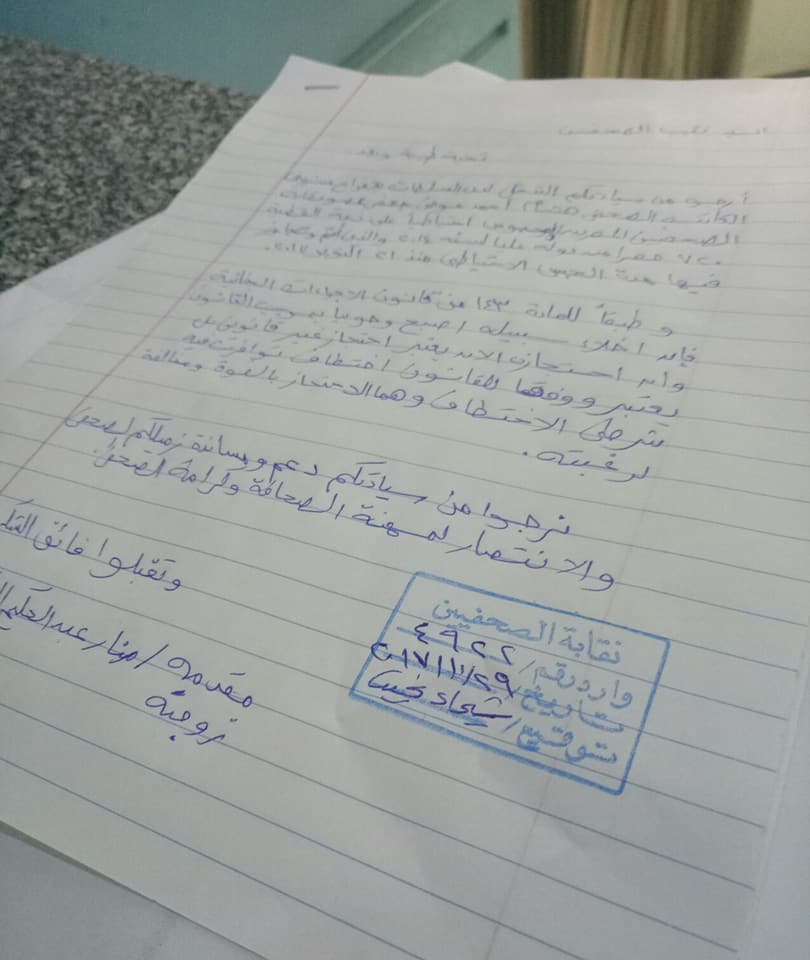 السيد نقيب الصحفيين
تحية طيبة وبعد
أرجو من سيادتكم التدخل لدى السلطات للإفراج
الكاتب الصحفي أحمد
الصحفيين المصريين المحبوس احتياطيا على ذمة القضية
٧٢٠ حصر أمن دولة عليا لسنة والذي أتم
فيها مدة الحبس الاحتياطي منذ ٢١ أكتوبر ٢٠١٧.
و طبقاً للمادة ١٤٣ من قانون الاجراءات الجنائية
فإن اخلاء سبيله اصبح وجوبا بموجب القانون
وأن احتجازه الآن يعتبر احتجاز غير قانوني بل
يعتبر ووفقا للقانون اختطاف توافرت فيه
شرطي الاختطاف وهما الاحتجاز بالقوة ومخالفة
لرغبته.
نرجوا من سيادتكم دعم ومساندة زميلكم الصحفى
والانتصار لمهنة الصحافة وكرامة الصحفى.
وتقبلوا فائق
مقدمه / منار عبد الحكيم
زوجته
نقابة الصحفيين
وارد رقم / ٤٩٢٢
بتاريخ / ٢٠١٧/١١/٢٩
توقيع / شيماء